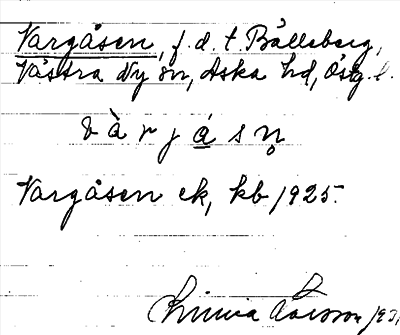 Vargåsen, f. d. t. Bålleberg,
Västra Ny sn, Aska hd, Östg. l.
v à r j á s n̥
Vargåsen ek, kb 1925.
Linnea Larsson 193